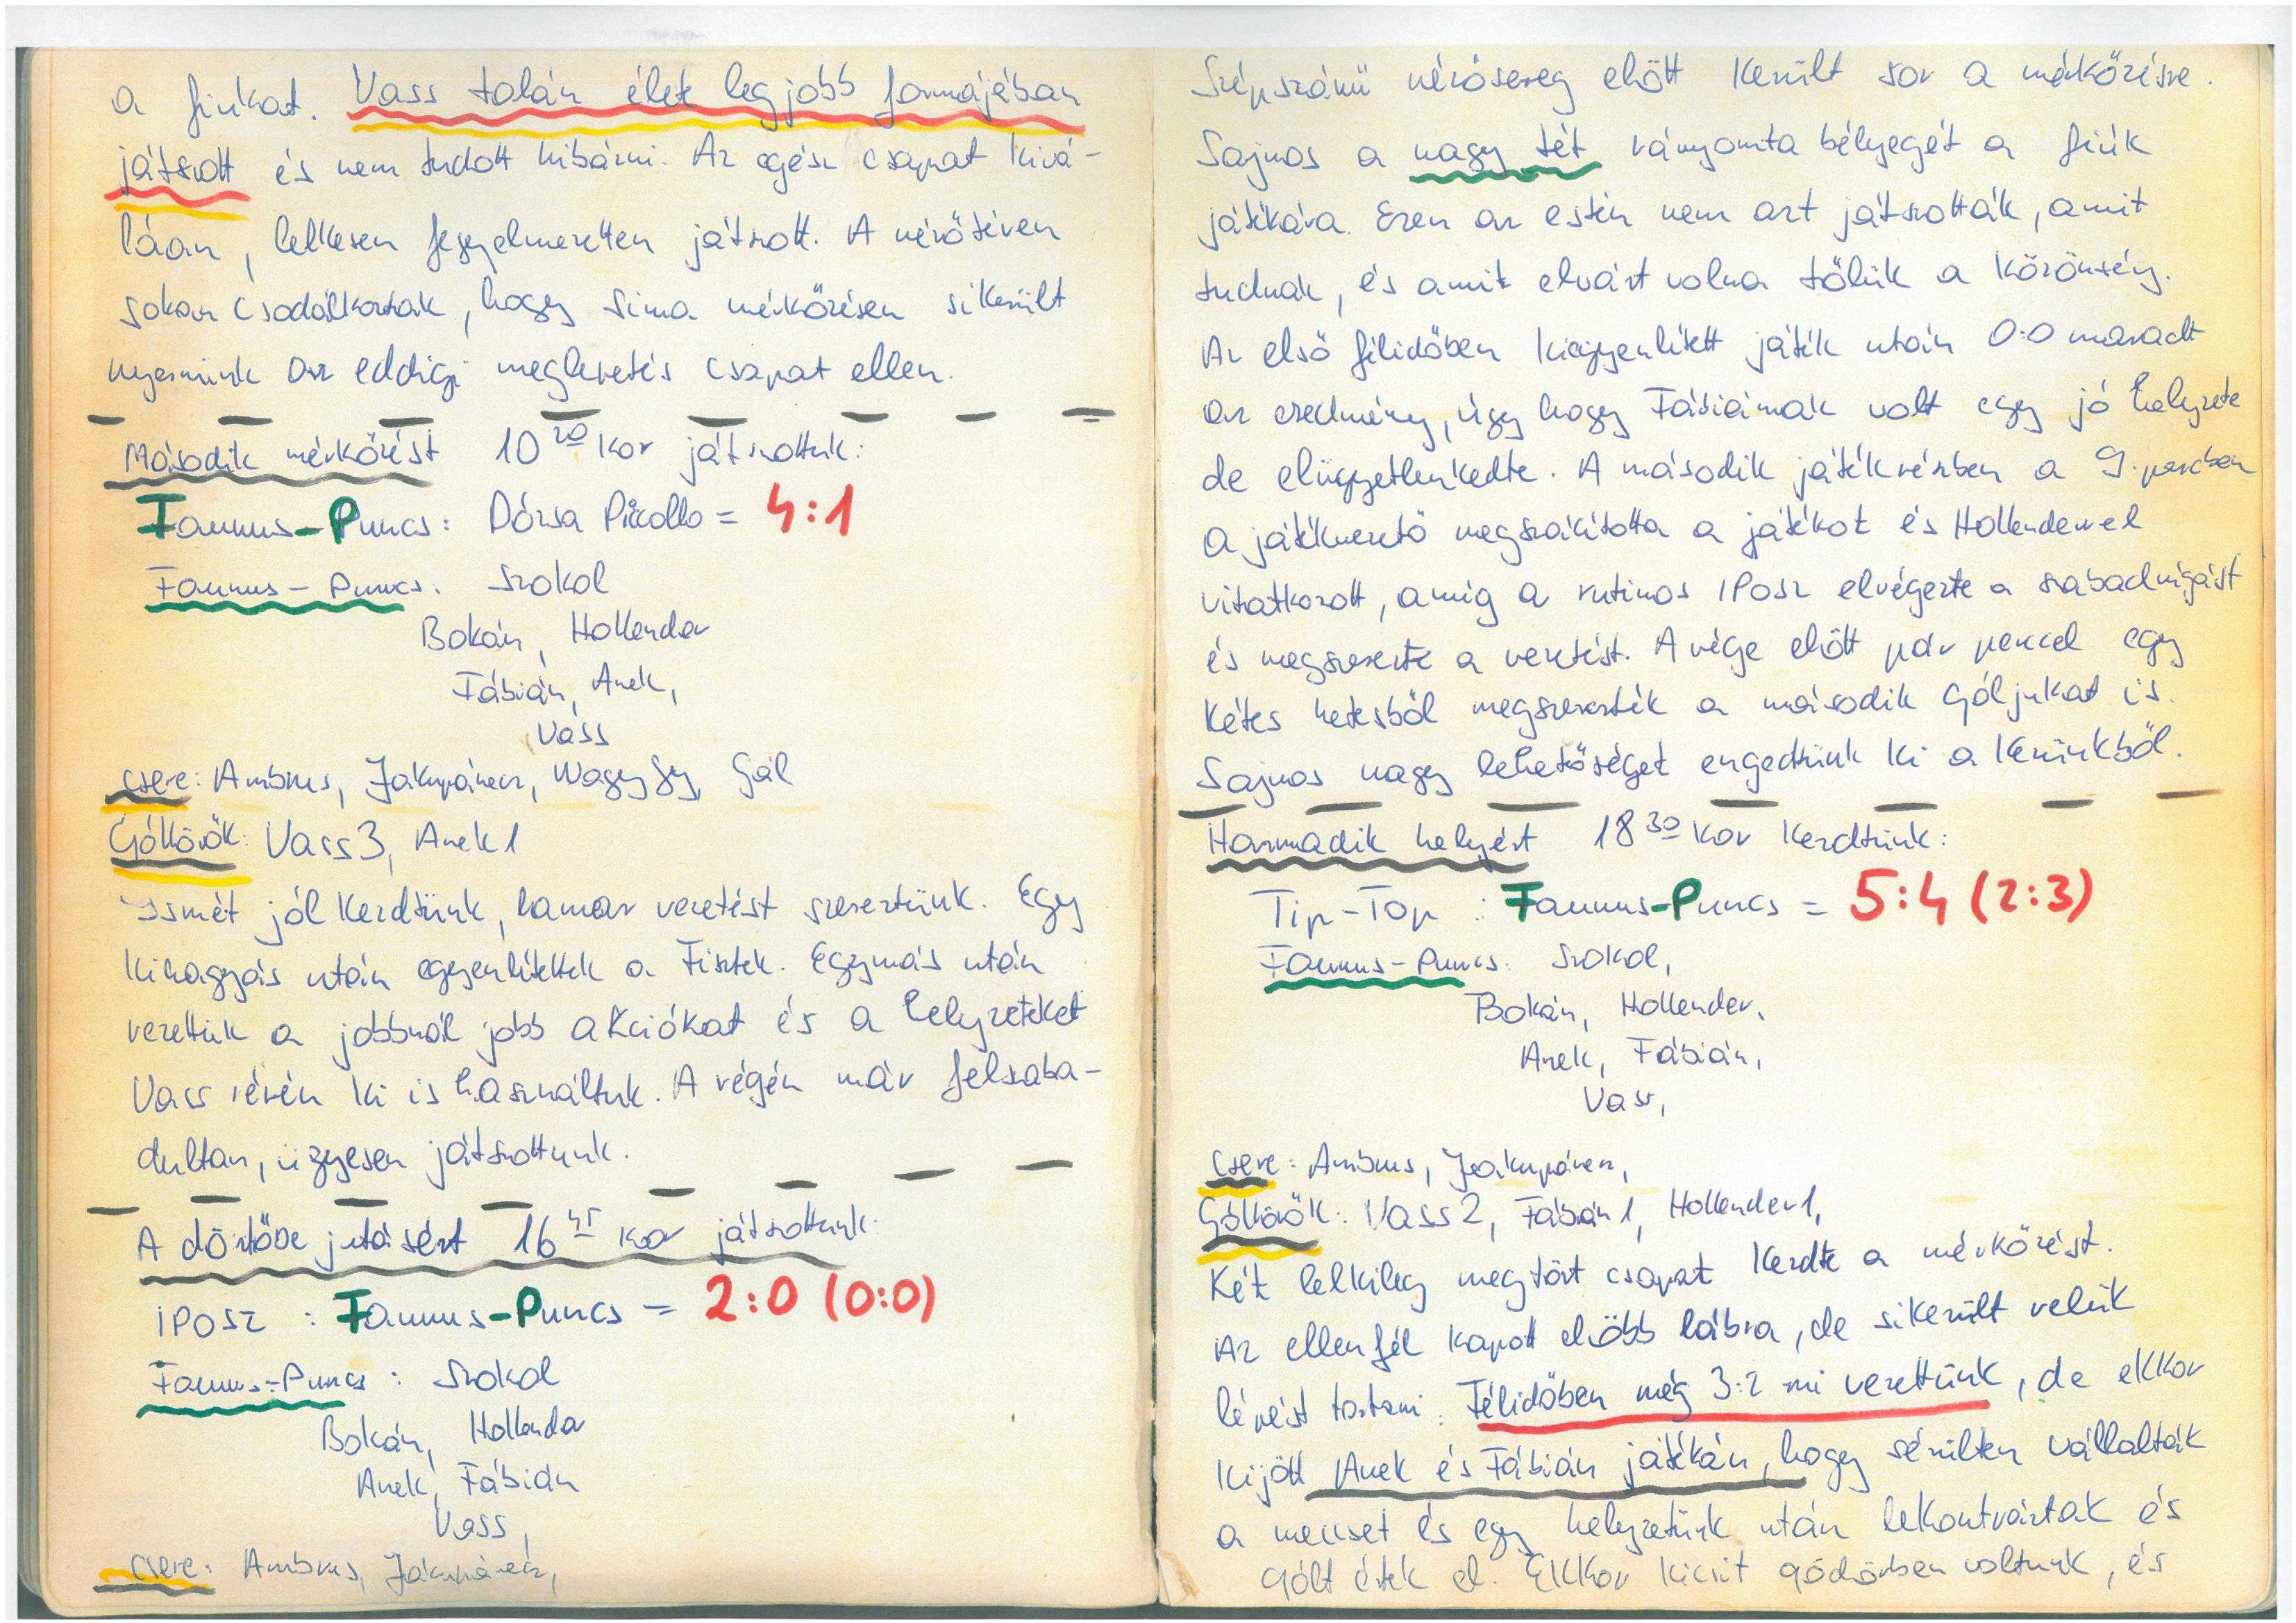 a fiúkat. Vass talán élete legjobb formájában
játszott és nem tudott hibázni. Az egész csapat kivá-
lóan, lelkesen fegyelmezetten játszott. A nézőtéren
sokan csodálkoztak, hogy sima mérkőzésen sikerült
nyernünk az eddigi meglepetés csapat ellen.
Második mérkőzést 10 20 kor játszottuk:
Faunus-Puncs: Dózsa Piccollo = 4:1
Faunus-Puncs. Szokol
Bokán, Hollender
Fábián, Anek,
Vass
Csere: Ambrus, Jákupánecz, Nagy Gy, Gál
Góllövők: Vass 3, Anek 1
Ismét jól kezdtünk, hamar vezetést szereztünk. Egy
kihagyás után egyenlítettek a Tisztek. Egymás után
vezettük a jobbnál jobb akciókat és a helyzeteket
Vass révén ki is használtuk. A végén már felszaba-
dultan, ügyesen játszottunk.
A döntőbe jutásért 16 45 kor játszottunk:
IPOSZ : Faunus-Puncs = 2:0 (0:0)
Faunus-Puncs : Szokol
Bokán, Hollender
Anek, Fábián
Vass,
Csere: Ambrus, Jákupánecz,
Szépszámú nézősereg előtt került sor a mérkőzésre.
Sajnos a nagy tét rányomta bélyegét a fiúk
játékára. Ezen az estén nem azt játszották, amit
tudnak, és amit elvárt volna tőlük a közönség.
Az első félidőben kiegyenlített játék után 0:0 maradt
az eredmény, úgy hogy Fábiánnak volt egy jó helyzete
de elügyetlenkedte. A második játékrészben a 9. percben
a játékvezető megszakította a játékot és Hollenderrel
vitatkozott, amíg a rutinos IPOSZ elvégezte a szabadrúgást
és megszerezte a vezetést. A vége előtt pár perccel egy
kétes hetesből megszerezték a második góljukat is.
Sajnos nagy lehetőséget engedtünk ki a kezünkből.
Harmadik helyért 18 30 kor kezdtünk:
Tip-Top : Faunus-Puncs = 5:4 (2:3)
Faunus-Puncs: Szokol,
Bokán, Hollender,
Anek, Fábián,
Vass,
Csere: Ambrus, Jákupánecz,
Góllövők: Vass 2, Fábián 1, Hollender 1,
Két lelkileg megtört csapat kezdte a mérkőzést.
Az ellenfél kapott előbb lábra, de sikerült velük
lépést tartani. Félidőben még 3:2-ni vezettünk, de ekkor
kijött Anek és Fábián játékán, hogy sérülten vállalták
a meccset és egy helyzetünk után lekontráztak és
gólt értek el. Ekkor kicsit gödörben voltunk, és